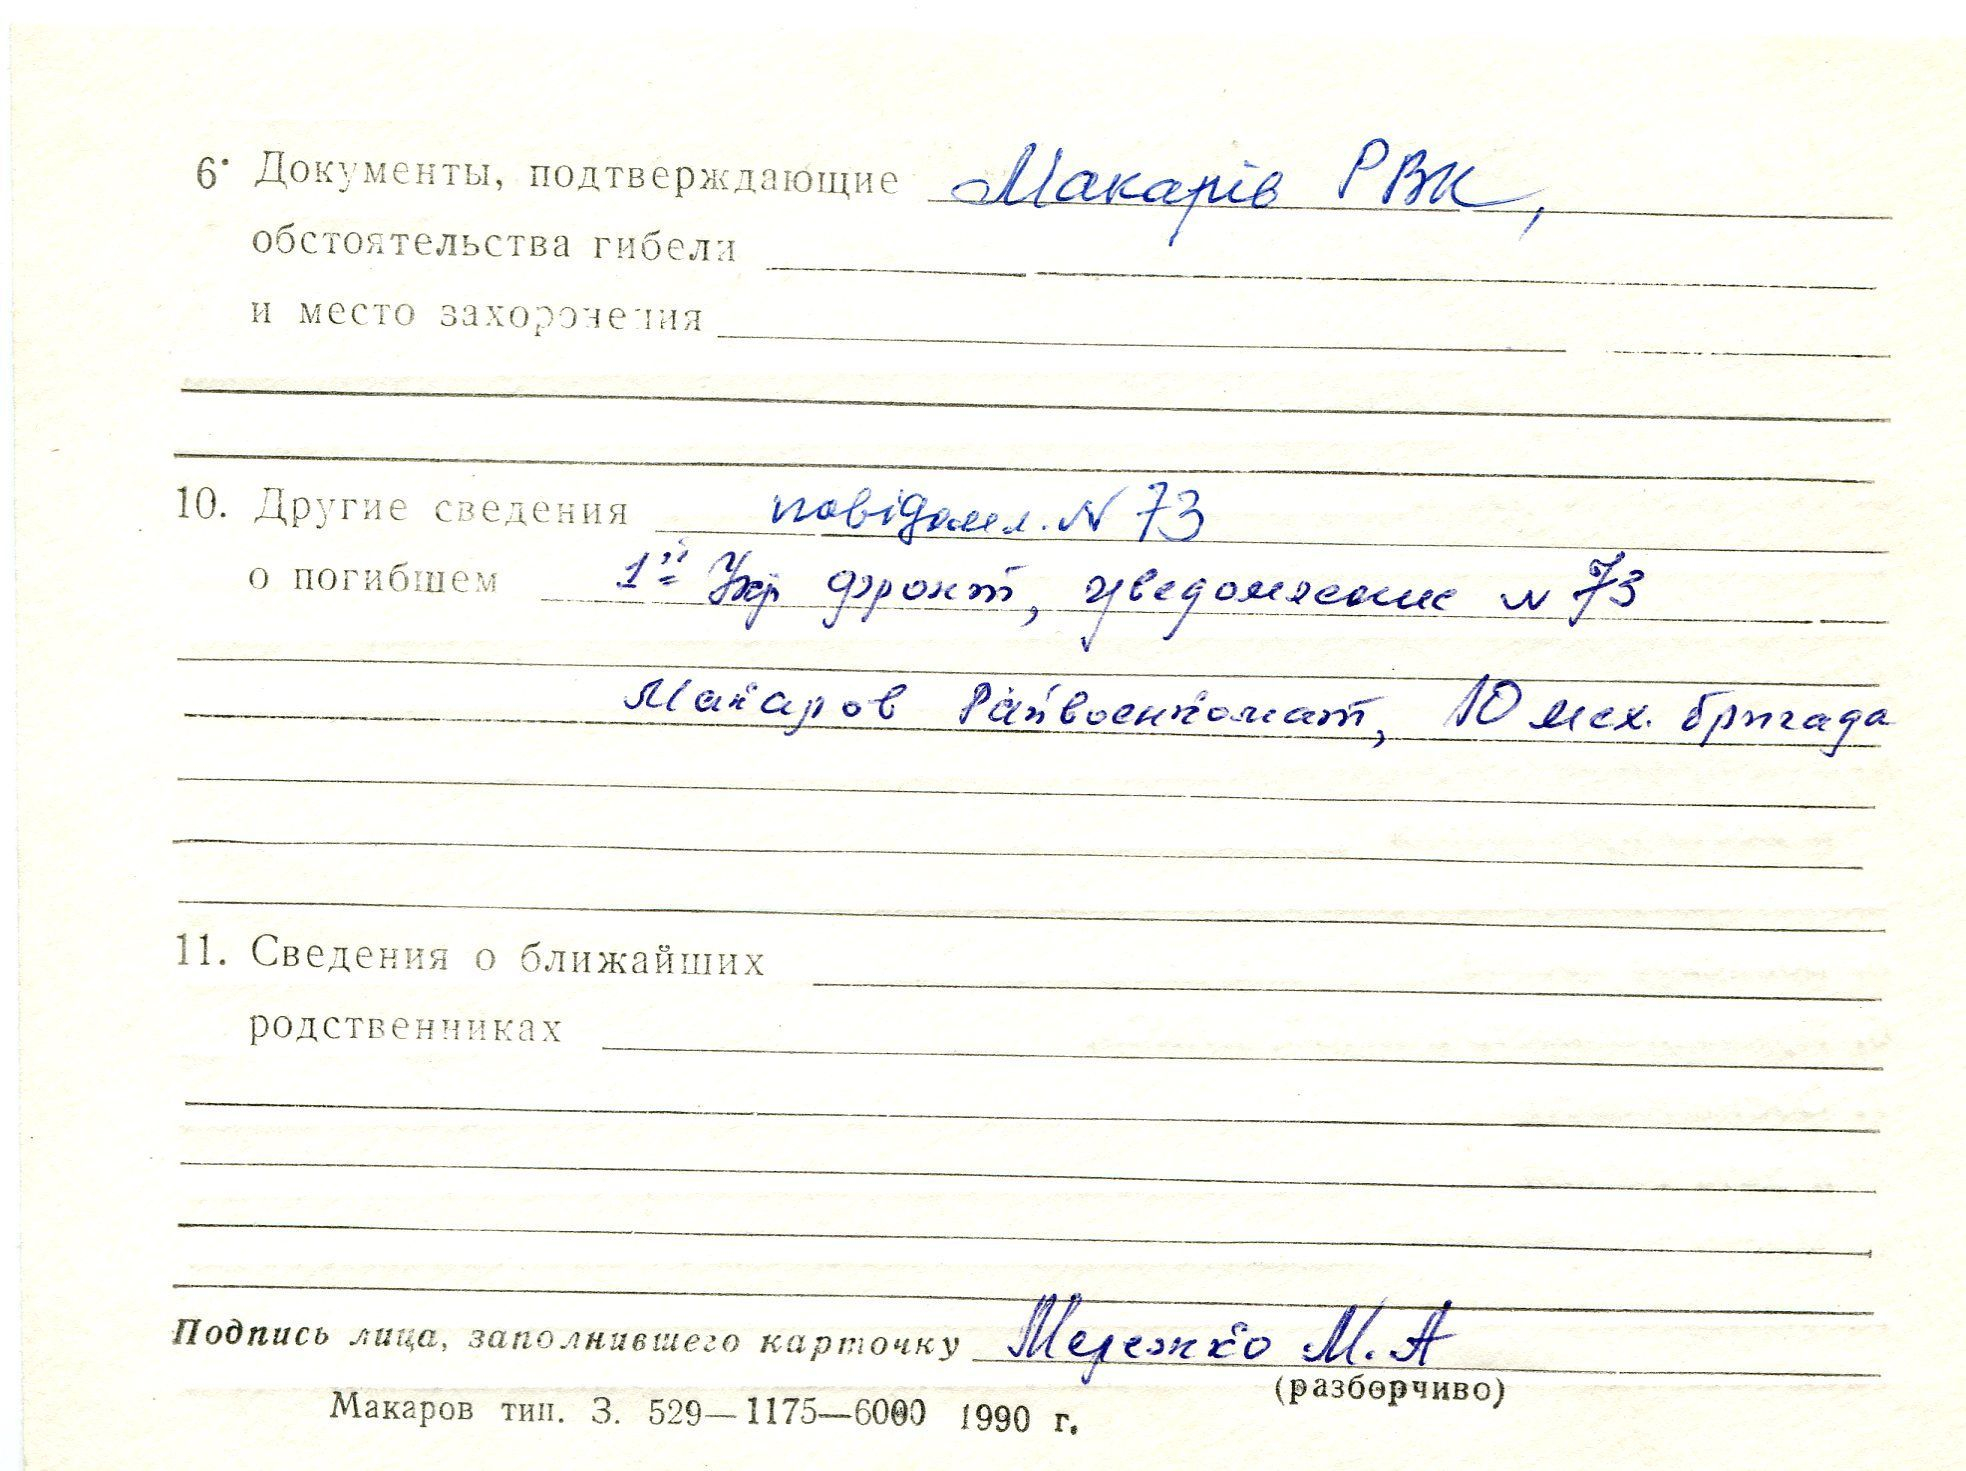 6. Документы, подтверждающие Макарів РВК,
обстоятельства гибели
и место захоронения
10. Другие сведения повідомл. N 73
о погибшем 1й Укр фронт, уведомление N 73
Макаров Райвоенкомат, 10 мех. бригада
11. Сведения о ближайших
родственниках
Подпись лица, заполнившего карточку Мережко М.А
(разборчиво)
Макаров тип. З. 529—1175—6000 1990 г.